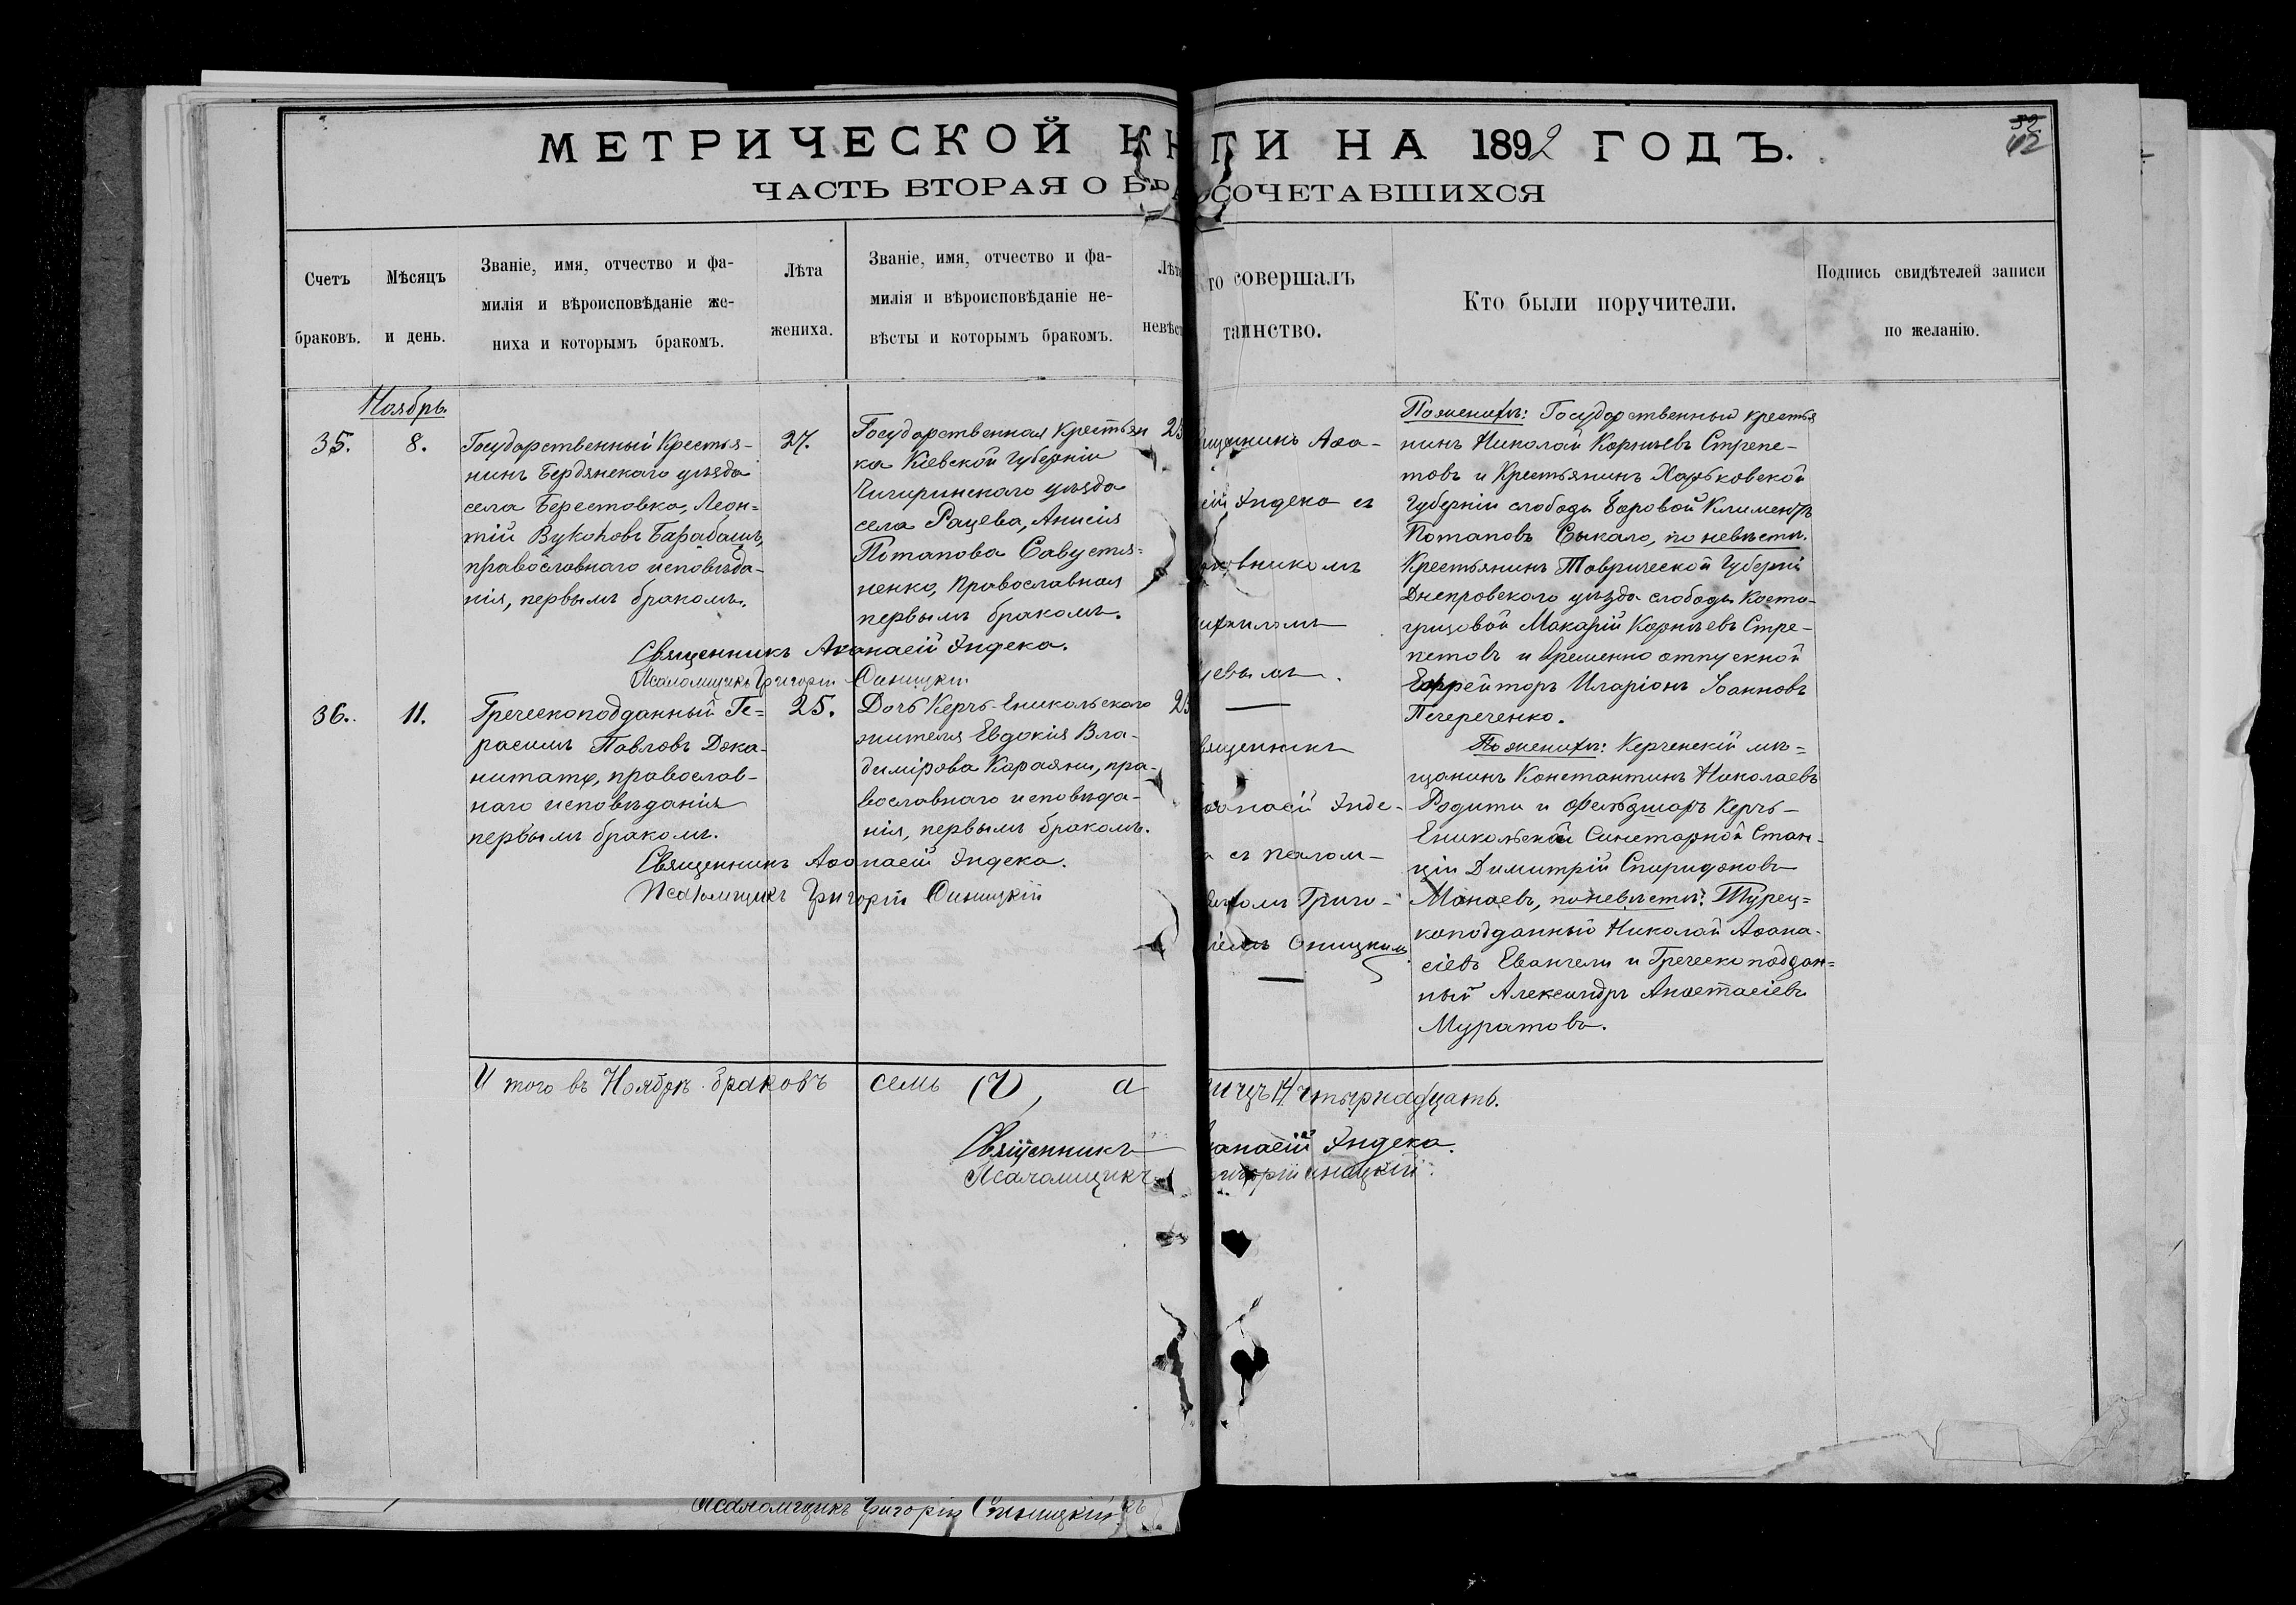 МЕТРИЧЕСКОЙ КН ГИ НА 1892 ГОДЪ.
ЧАСТЬ ВТОРАЯ О БРА СОЧЕТАВШИХСЯ
42
Счетъ браковъ.
Мѣсяцъ и день.
Званіе, имя, отчество и фа-
милія и вѣроисповѣданіе же-
ниха и которымъ бракомъ.
Лѣта
жениха.
Званіе, имя, отчество и фа-
милія и вѣроисповѣданіе не-
вѣсты и которымъ бракомъ.
Лѣта
невѣст
то совершалъ
таинство.
Кто были поручители.
Подпись свидѣтелей записи
по желанію.
Ноябрь.
35.
8.
Государственный Крестья-
нинъ Бердянскаго уѣзда
села Берестовка, Леон=
тій Барабашъ,
православнаго исповѣда-
нія, первымъ бракомъ.
27.
Государственная Крестьян
ка Кіевской Губерніи
Чигиринскаго уѣзда
села Рацева, Анисія
Потапова Савустья=
ненко, Православная
первымъ бракомъ.
Священникъ Аѳанасій Индека.
Псаломщикъ Григорій Синицкій
щенникъ Аѳа-
сій Индека съ
Поженихѣ: Государственный крестья
нинъ Николай Корнѣевъ Стрепе-
товъ и Крестьянинъ Харьковской
Губерніи слободы Боровой Климентъ
Потаповъ Сыкало, по невѣстѣ.
Крестьянинъ Таврической Губерніи
Днепровскаго уѣзда слободы Косто-
грызовой Макарій Корнѣевъ Стре-
петовъ и временно отпускной
Ефрейторъ Иларіонъ Іоанновъ
Печереченко.
36.
11.
Греческоподданный Ге=
расимъ Павловъ Дока-
нитату, православ-
наго исповѣданія
первымъ бракомъ.
25.
Дочь Керчь-Еникольскаго
жителя Евдокія Вла-
димірова Караяни, пра-
вославнаго исповѣда-
нія, первымъ бракомъ.
Священникъ Аѳанасій Индека.
Псаломщикъ Григорій Синицкій
вященникъ
ѳанасій Инде-
а съ псалом-
щикомъ Григо-
ріемъ Синицкимъ
Поженихѣ: Керченскій мѣ=
щанинъ Константинъ Николаевъ
Родити и Фельдшеръ Керчь-
Еникольской Санитарной Стан-
ціи Димитрій Спиридоновъ
Манаевъ, по невѣстѣ: Турец=
коподданный Николай Аѳана-
сіевъ Евангели и Греческоподдан=
ный Александръ Анастасіевъ
Муратовъ.
Итого въ Ноябрѣ браковъ семь (7), а лицъ 14 четырнадцать.
Священникъ Аѳанасій Индека.
Псаломщикъ Григорій Синицкій.
Псаломщикъ Григорій Синицкій